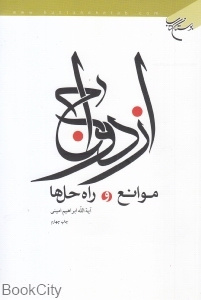 بوستان کتاب
ازدواج
موانع و راه حل‌ها
آیة الله ابراهیم امینی
چاپ چهارم
BookCity